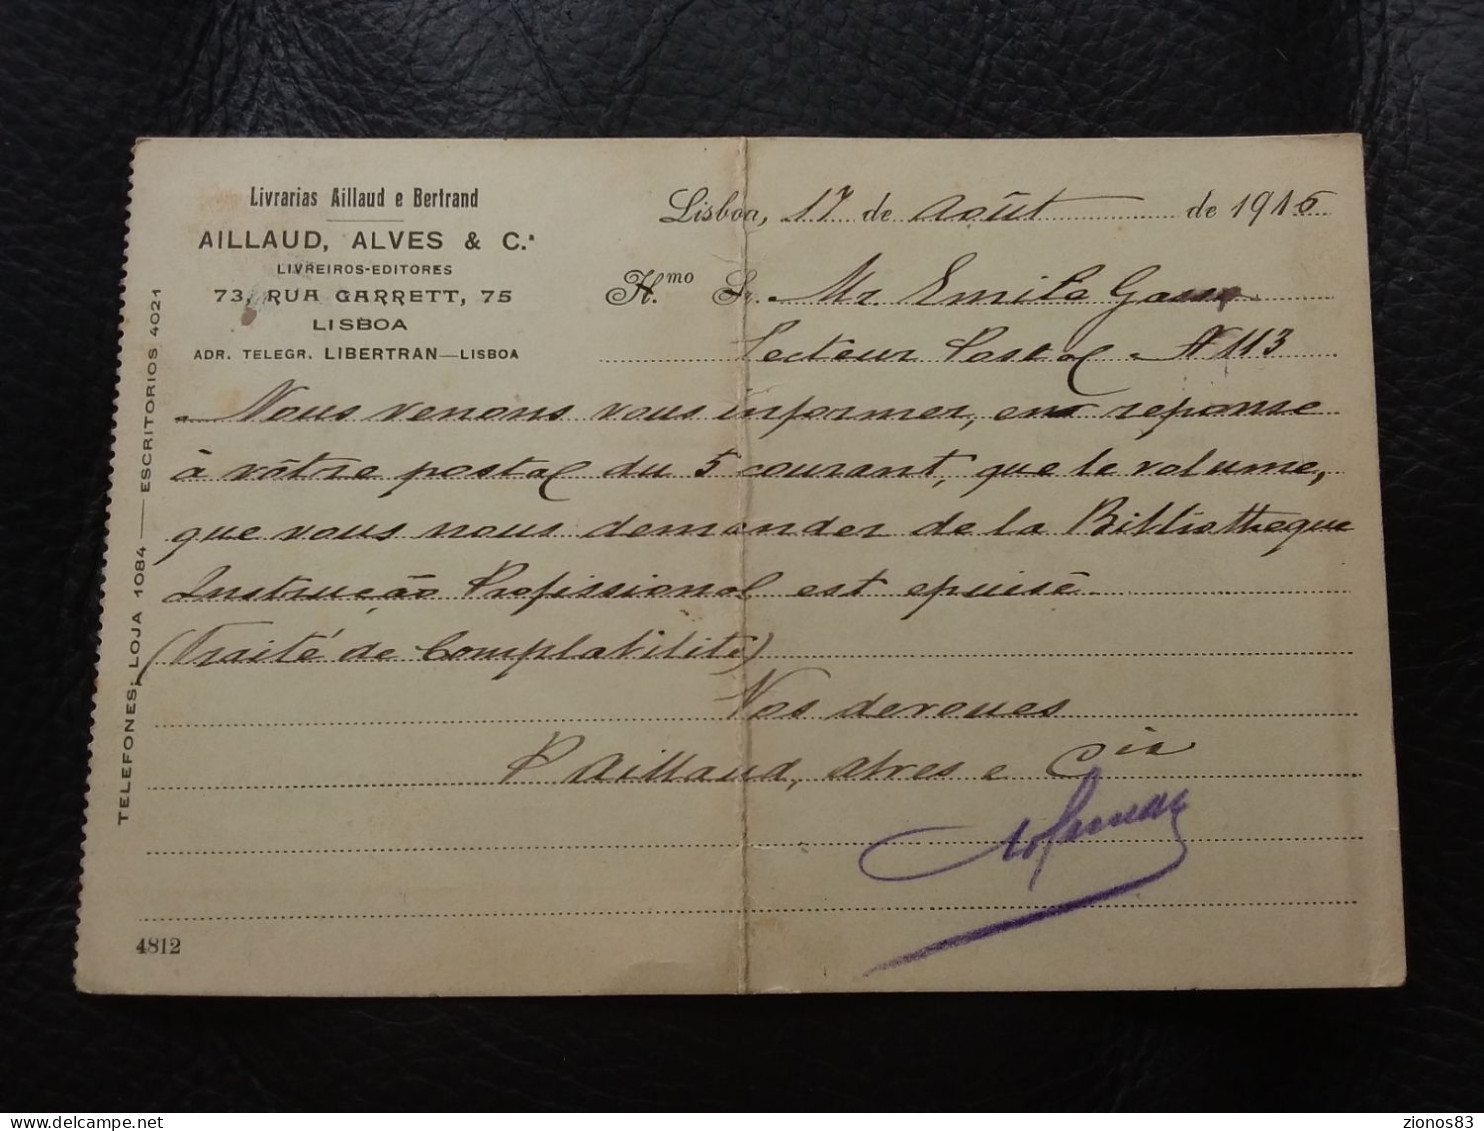 Livrarias Aillaud e Bertrand
AILLAUD, ALVES & C.ª
LIVREIROS-EDITORES
73, RUA GARRETT, 75
LISBOA
ADR. TELEGR. LIBERTRAN—LISBOA
TELEFONES: LOJA 1084 — ESCRITORIOS 4021
Lisboa, 17 de Août de 1916
Il.mo Sr. Mr Emile
Secteur Postal Nº 113
Nous venons vous informer, en reponse
à vôtre postal du 5 courant, que le volume,
que vous nous demander de la Bibliotheque
Instrução Profissional est epuisé
(Traité de Complabilité)
Nos devoues
P Aillaud, Alves e Cia
4812
zionos83